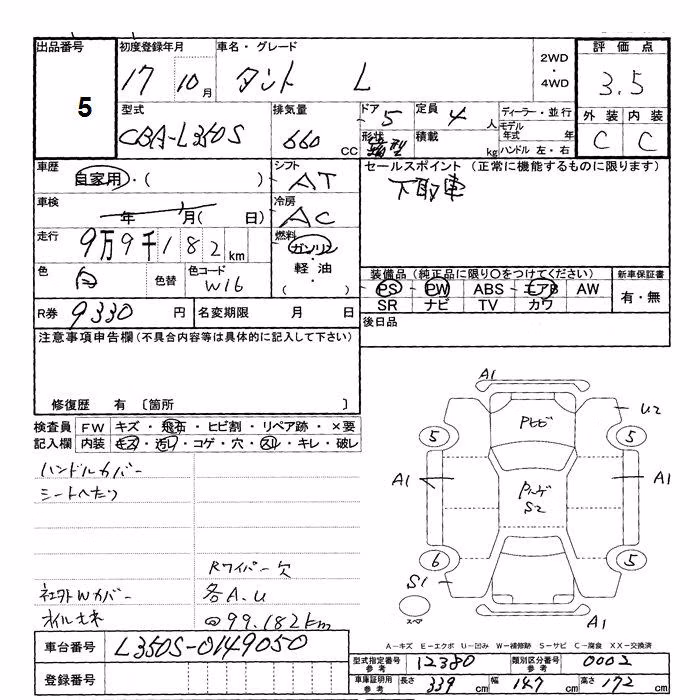 出品番号 初度登録年月 車名・グレード 2WD・4WD 評価点
5 17 10月 タント L 3.5
型式 排気量 ドア 定員 ディーラー・並行 外装 内装
CBA-L350S 660 CC 5 4人 モデル年式 年 C C
形状 箱型 積載 kg ハンドル 左・右
車歴 自家用・( ) シフト AT セールスポイント (正常に機能するものに限ります)
下取車
車検 年 月( 日) 冷房 AC
走行 9万9千182km 燃料 ガソリン・軽油・( )
色 白 色替 色コード W16 装備品 (純正品に限り○をつけてください) 新車保証書
PS PW ABS エアB AW 有・無
SR ナビ TV カワ
R券 9330円 名変期限 月 日 後日品
注意事項申告欄 (不具合内容等は具体的に記入して下さい)
修復歴 有 〔箇所 〕
検査員 FW キズ・飛石・ヒビ割・リペア跡・×要
記入欄 内装 キズ・汚レ・コゲ・穴・スレ・キレ・破レ
ハンドルカバー
シートへたり
Rワイパー欠
社外Wカバー 各A.U
オイル土木 99.182km
A1
U2
Pトビ
5 5
A1 A1
S2
6 5
S1
スペア A1
A-キズ E-エクボ U-凹み W-補修跡 S-サビ C-腐食 XX-交換済
車台番号 L350S-0149050
型式指定番号 参考 12380 類別区分番号 参考 0002
登録番号
車庫証明用 参考 長さ 339cm 幅 147cm 高さ 172cm